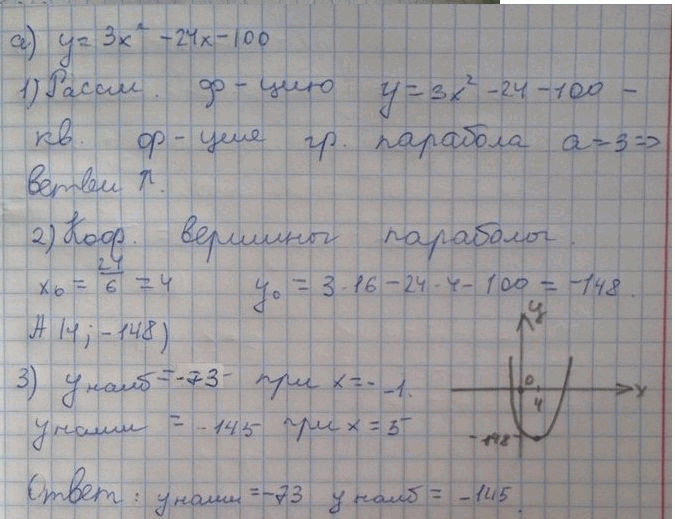 а) y = 3x² - 24x - 100
1) Рассм. ф-цию y = 3x² - 24 - 100 -
кв. ф-ция гр. парабола a = 3 =>
ветви ↑.
2) Коор. вершины параболы.
x₀ = 24/6 = 4 y₀ = 3·16 - 24·4 - 100 = -148.
A (4; -148)
3) y наиб = -73 при x = - -1.
y наим = -145 при x = 5
y
0
x
4
-148
Ответ: y наим = -73 y наиб = -145.